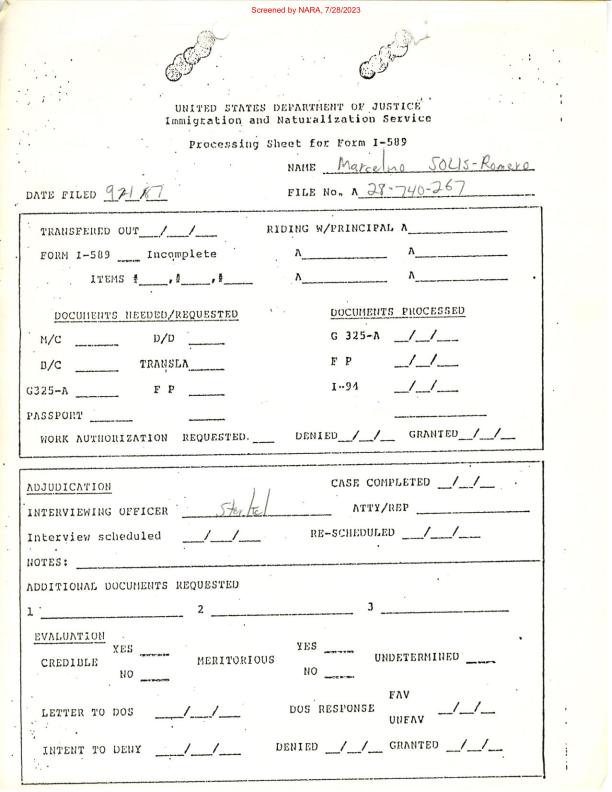 Screened by NARA, 7/28/2023
UNITED STATES DEPARTMENT OF JUSTICE
Immigration and Naturalization Service
Processing Sheet for Form I-589
NAME Marcelino SOLIS-Romero
DATE FILED 9/21/87 FILE No. A 28-740-267
TRANSFERED OUT___/___/___ RIDING W/PRINCIPAL A___
FORM I-589 ___ Incomplete A___ A___
ITEMS #___,#___,#___ A___ A___
DOCUMENTS NEEDED/REQUESTED DOCUMENTS PROCESSED
M/C ___ D/D ___ G 325-A __/__/__
B/C ___ TRANSLA___ F P __/__/__
G325-A ___ F P ___ I-94 __/__/__
PASSPORT ___ ___ ___
WORK AUTHORIZATION REQUESTED.___ DENIED__/__/__ GRANTED__/__/__
ADJUDICATION CASE COMPLETED __/__/__
INTERVIEWING OFFICER ___ ATTY/REP ___
Interview scheduled ___/___/___ RE-SCHEDULED ___/___/___
NOTES: ___
ADDITIONAL DOCUMENTS REQUESTED
1 ___ 2 ___ 3 ___
EVALUATION
CREDIBLE YES ___ NO ___ MERITORIOUS YES ___ NO ___ UNDETERMINED ___
LETTER TO DOS ___/___/___ DOS RESPONSE FAV UNFAV __/__/__
INTENT TO DENY ___/___/___ DENIED __/__/__ GRANTED __/__/__